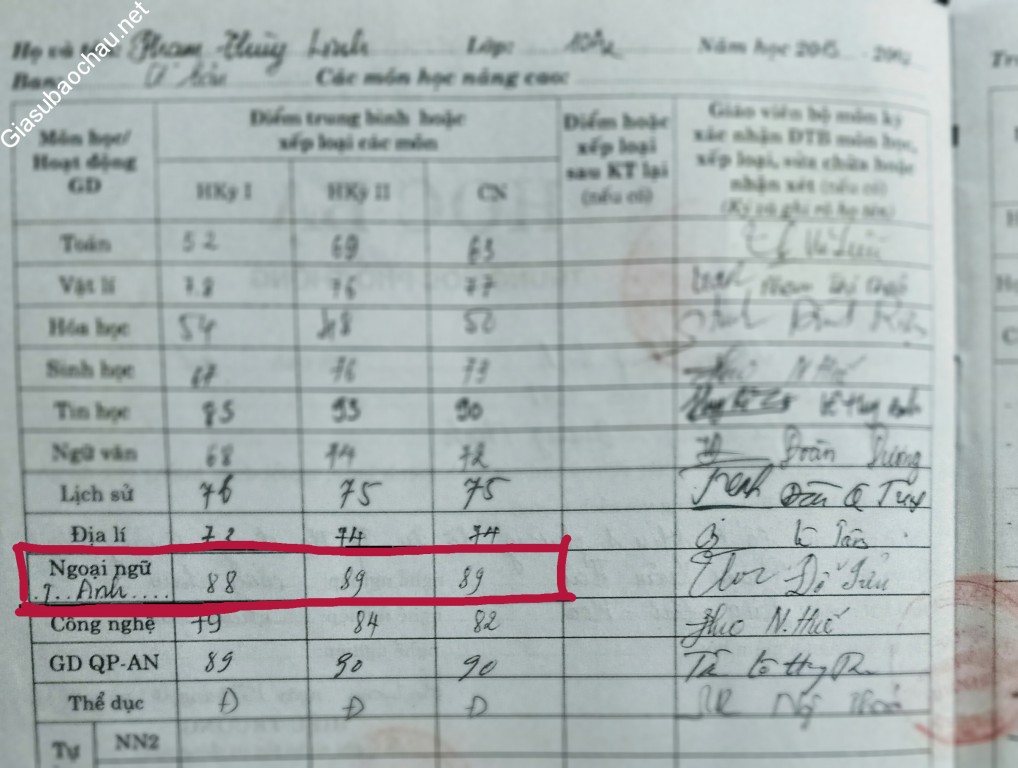 Giasubaochau.net
Họ và tên: Phạm Thùy Linh Lớp: Năm học 2015 - 20
Ban: Các môn học nâng cao:
Môn học/ Hoạt động GD
Điểm trung bình hoặc xếp loại các môn
Điểm hoặc xếp loại sau KT lại (nếu có)
Giáo viên bộ môn ký xác nhận ĐTB môn học, xếp loại, sửa chữa hoặc nhận xét (nếu có) (Ký và ghi rõ họ tên)
HKỳ I HKỳ II CN
Toán 52 69 63
Vật lí 78 76 77
Hóa học 54 48 50
Sinh học 67 76 73
Tin học 85 93 90
Ngữ văn 68 74 72 Đoàn Dương
Lịch sử 76 75 75
Địa lí 72 74 74
Ngoại ngữ
T. Anh 88 89 89
Công nghệ 79 84 82 N. Huế
GD QP-AN 89 90 90
Thể dục Đ Đ Đ
Tự NN2